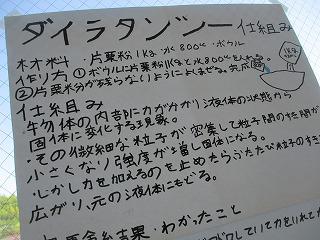 ダイラタンシー仕組み
材料・片栗粉1Kg・水800cc・ボウル
作り方①ボウルに片栗粉1Kgと水800ccを入れる。
②片栗粉分が残らないようによくまぜる。完成
1Kg
仕組み
・物体の内部に力が分かり液体の状態から
固体に変化する現象。
・その微細な粒子が密集して粒子間のすき間が
小さくなり強度が増し固体になる。
・しかし力を加えるのを止めたらふたたび粒子のすき
広がり、元の液体にもどる。
結果・わかったこと